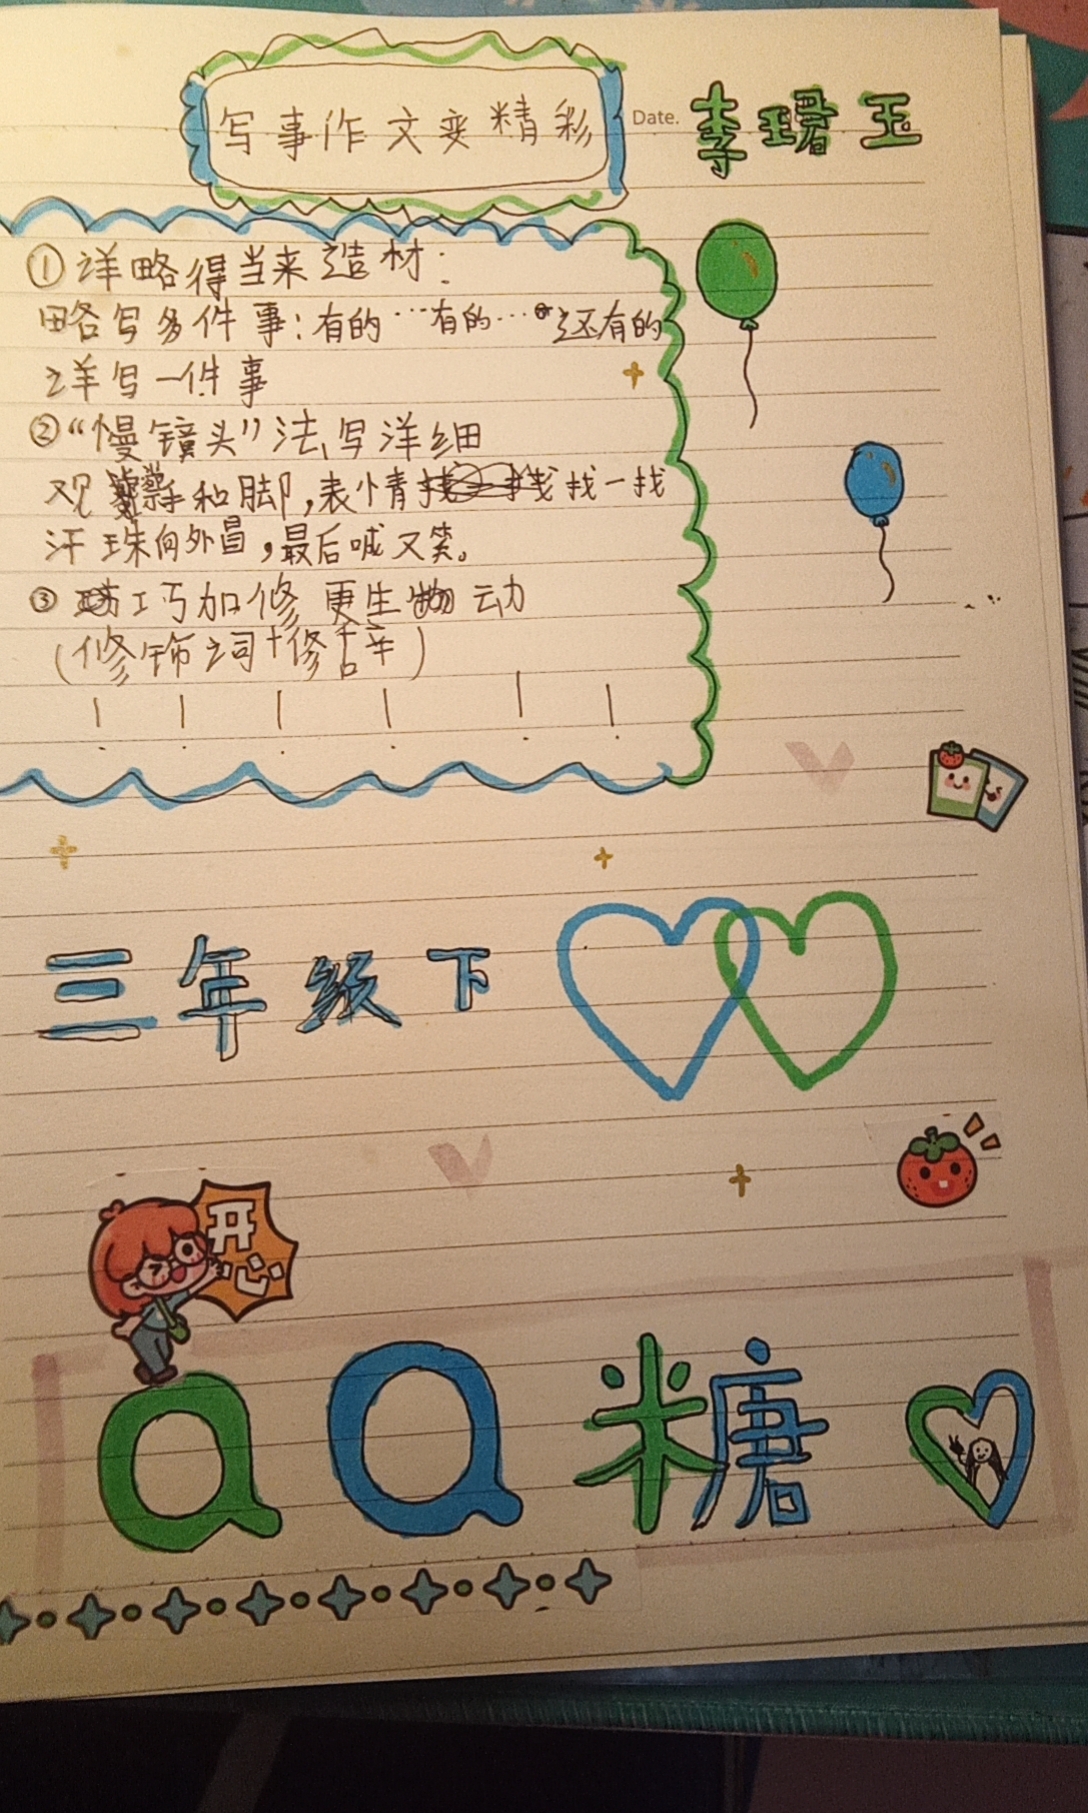 写事作文变精彩
Date. 李珺玉
①详略得当来造材:
略写多件事:有的…有的…还有的
详写一件事
②“慢镜头”法写洋细
观察手和脚,表情找一找
汗珠向外冒,最后喊又笑。
③巧加修更生动
(修饰词+修辞)
! ! ! ! ! !
三年级下
开心
QQ糖